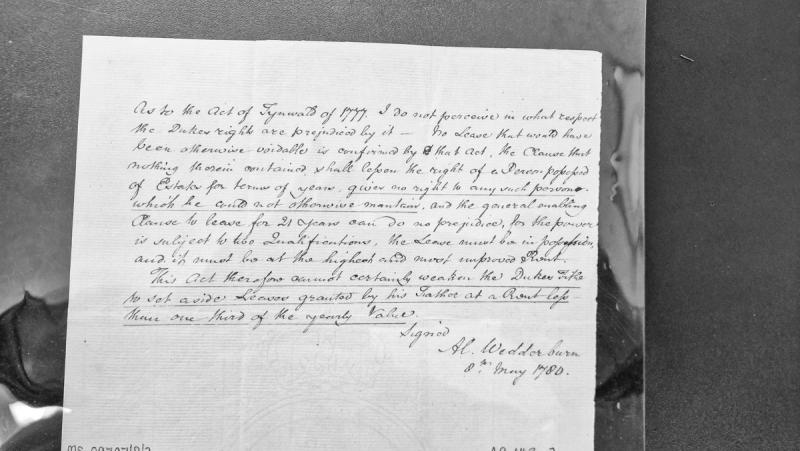 As to the Act of Tynwald of 1777. I do not perceive in what respect
the Dukes rights are prejudiced by it — No Lease that would have
been otherwise voidable is confirmed by that Act, the Clause that
nothing therein contained, shall lessen the right of a Person possessed
of Estates for terms of years, gives no right to any such person
which he could not otherwise mantain, and the general enabling
Clause to lease for 21 years can do no prejudice, for the power
is subject to two Qualifications, the Lease must be in possession,
and it must be at the highest and most improved Rent.
This Act therefore cannot certainly weaken the Dukes Title
to set aside Leases granted by his Father at a Rent less
than one third of the yearly Value.
Signed
Al. Wedderburn
8th May 1780.